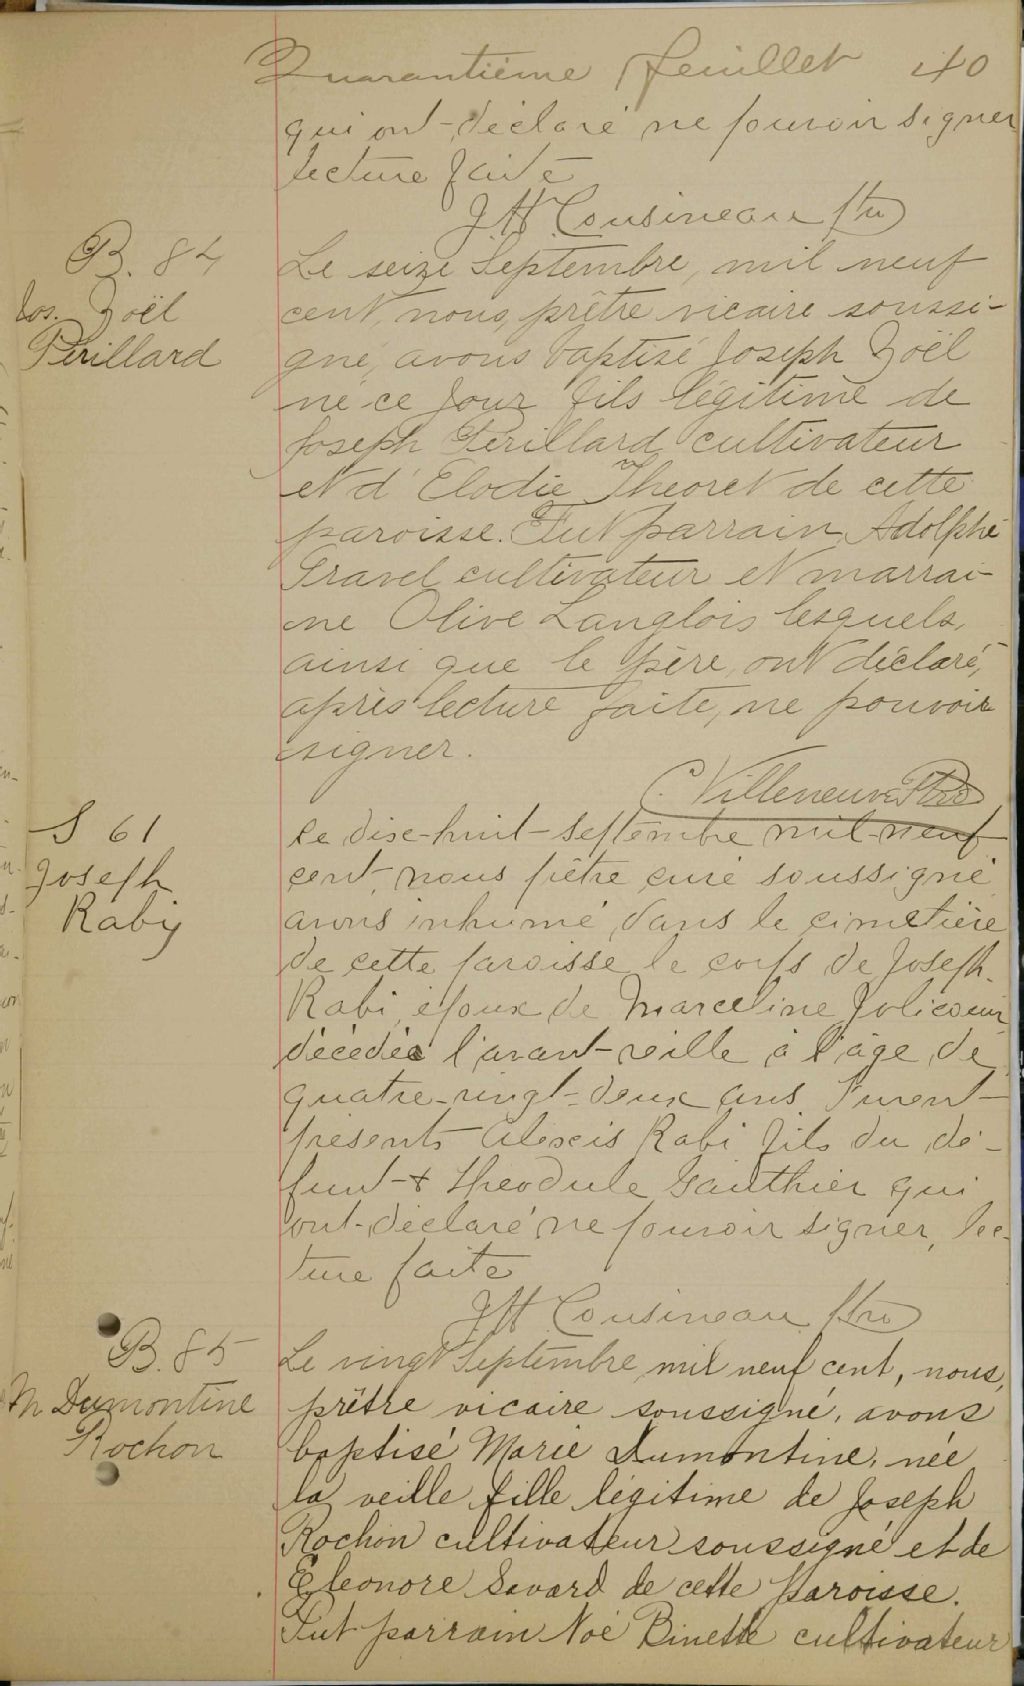 Quarantième feuillet 40
qui ont déclaré ne pouvoir signer
lecture faite
JH Cousineau ptre
B. 84
Jos. Zoël
Périllard
Le seize Septembre, mil neuf
cent, nous, prêtre vicaire soussi-
gné, avons baptisé Joseph Zoël
né ce jour fils légitime de
Joseph Périllard cultivateur
et d'Elodie Theoret de cette
paroisse. Fut parrain Adolphe
Gravel cultivateur et marrai-
ne Olive Langlois lesquels,
ainsi que le père, ont déclaré,
après lecture faite, ne pouvoir
signer.
C. Villeneuve Ptre
S 61
Joseph
Raby
Le dix-huit septembre mil neuf
cent, nous prêtre curé soussigné
avons inhumé, dans le cimetière
de cette paroisse le corps de Joseph
Rabi, époux de Marceline Jolicoeur
décédé l'avant-veille à l'âge de
quatre-vingt-deux ans. Furent
présents Alexis Rabi fils du dé-
funt & Theodule Gauthier qui
ont déclaré ne pouvoir signer, lec-
ture faite
JH Cousineau ptre
B. 85
M Dumontine
Rochon
Le vingt Septembre mil neuf cent, nous,
prêtre vicaire soussigné, avons
baptisé Marie Dumontine, née
la veille fille légitime de Joseph
Rochon cultivateur soussigné et de
Eleonore Savard de cette paroisse.
Fut parrain Noé Binette cultivateur